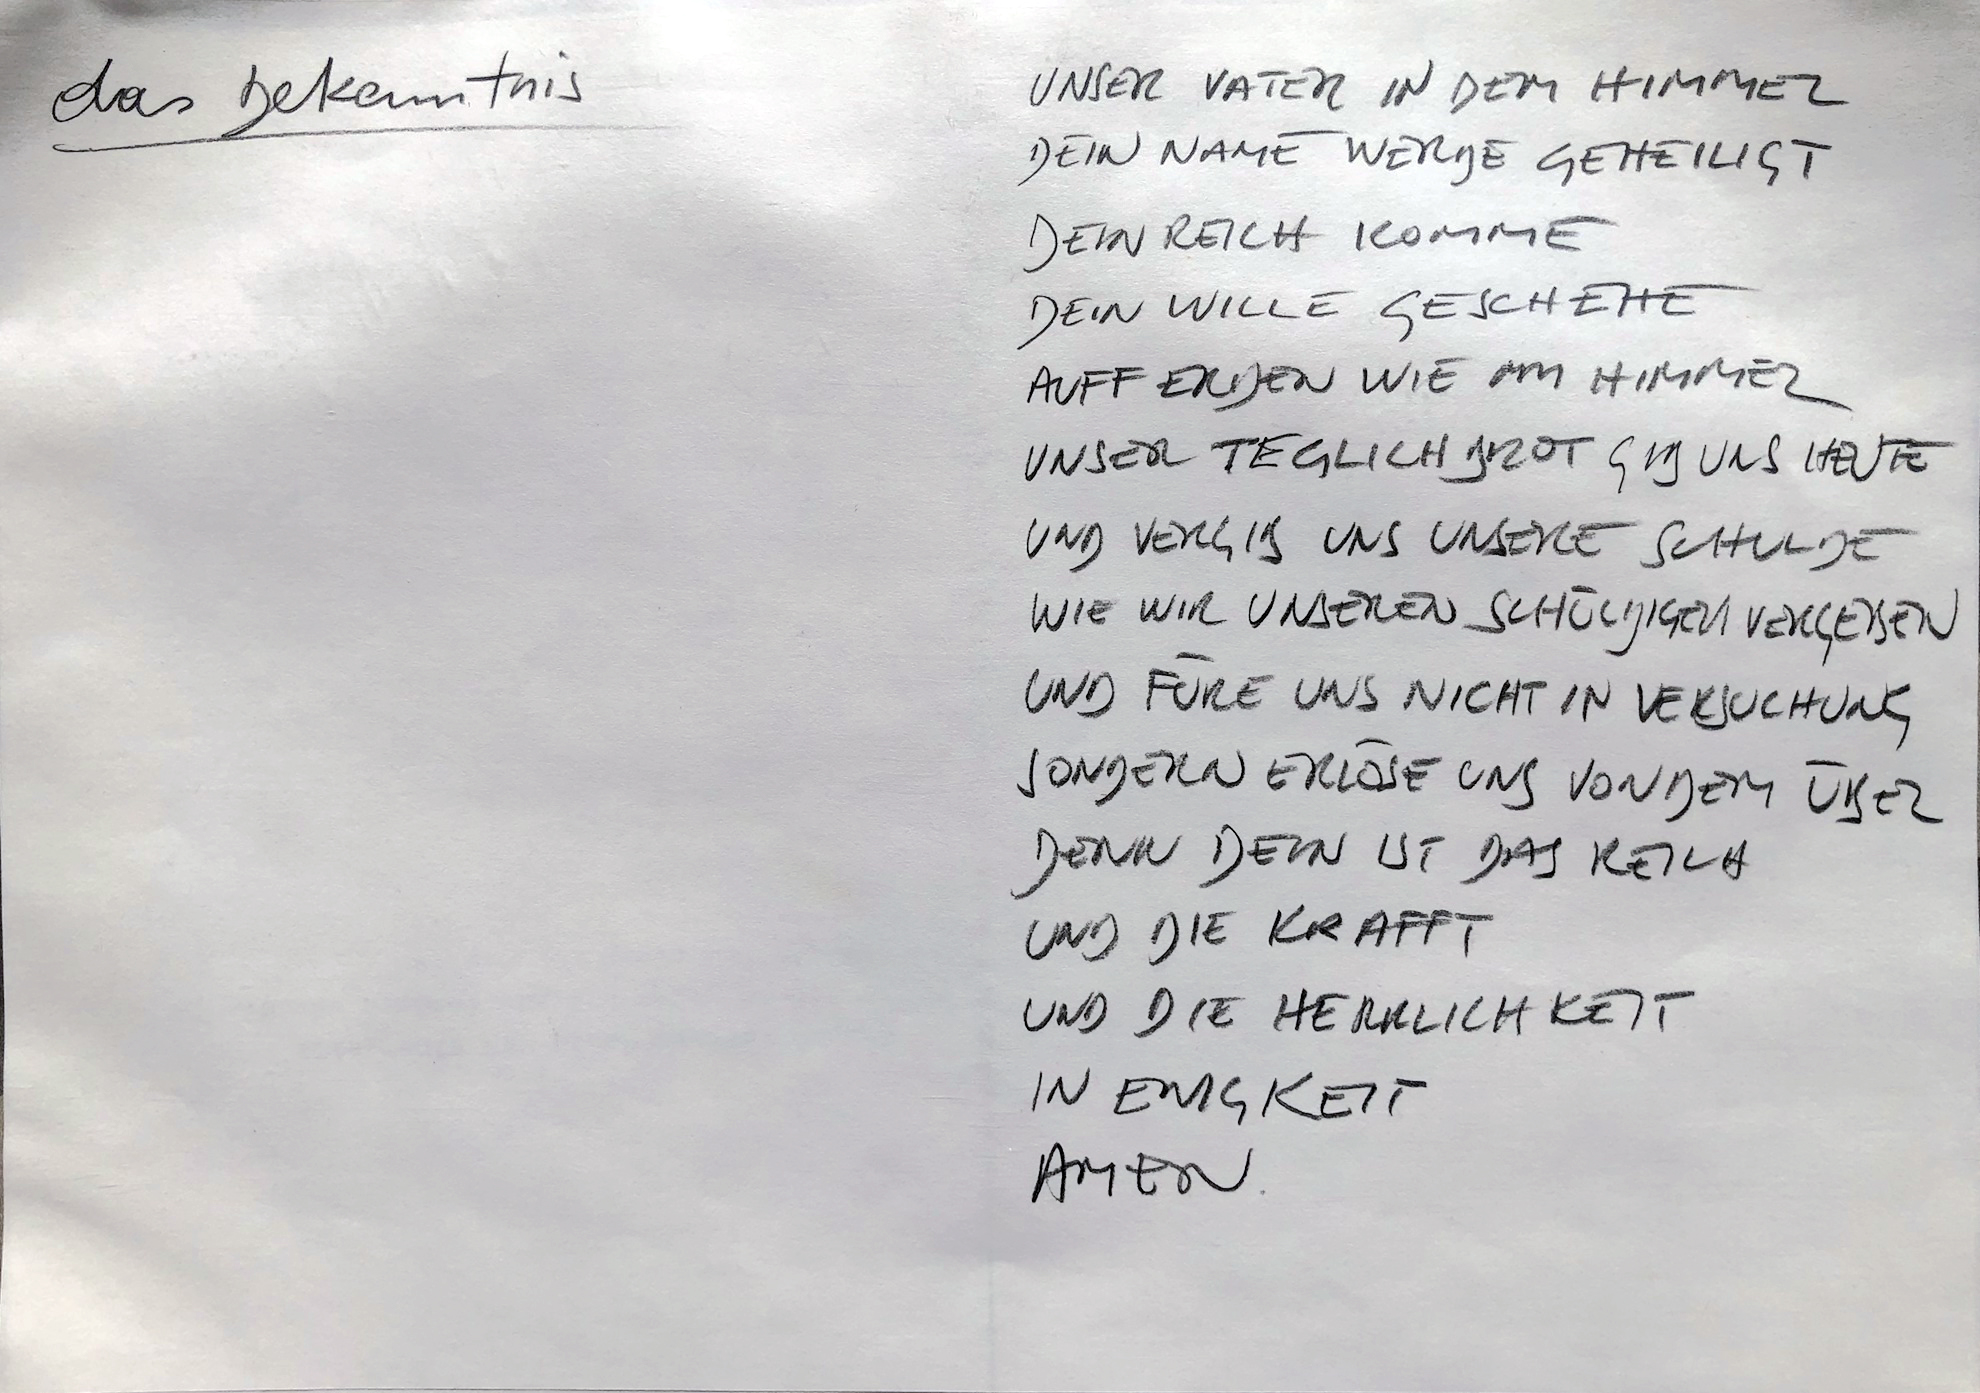 das Bekenntnis
UNSER VATER IN DEM HIMMEL
DEIN NAME WERDE GEHEILIGT
DEIN REICH KOMME
DEIN WILLE GESCHEHE
AUFF ERDEN WIE IM HIMMEL
UNSER TEGLICH BROT GIB UNS HEUTE
UND VERGIB UNS UNSERE SCHULDE
WIE WIR UNSEREN SCHÜLDIGEN VERGEBEN
UND FÜRE UNS NICHT IN VERSUCHUNG
SONDERN ERLÖSE UNS VON DEM ÜBEL
DENN DEIN IST DAS REICH
UND DIE KRAFFT
UND DIE HERRLICHKEIT
IN EWIGKEIT
AMEN.